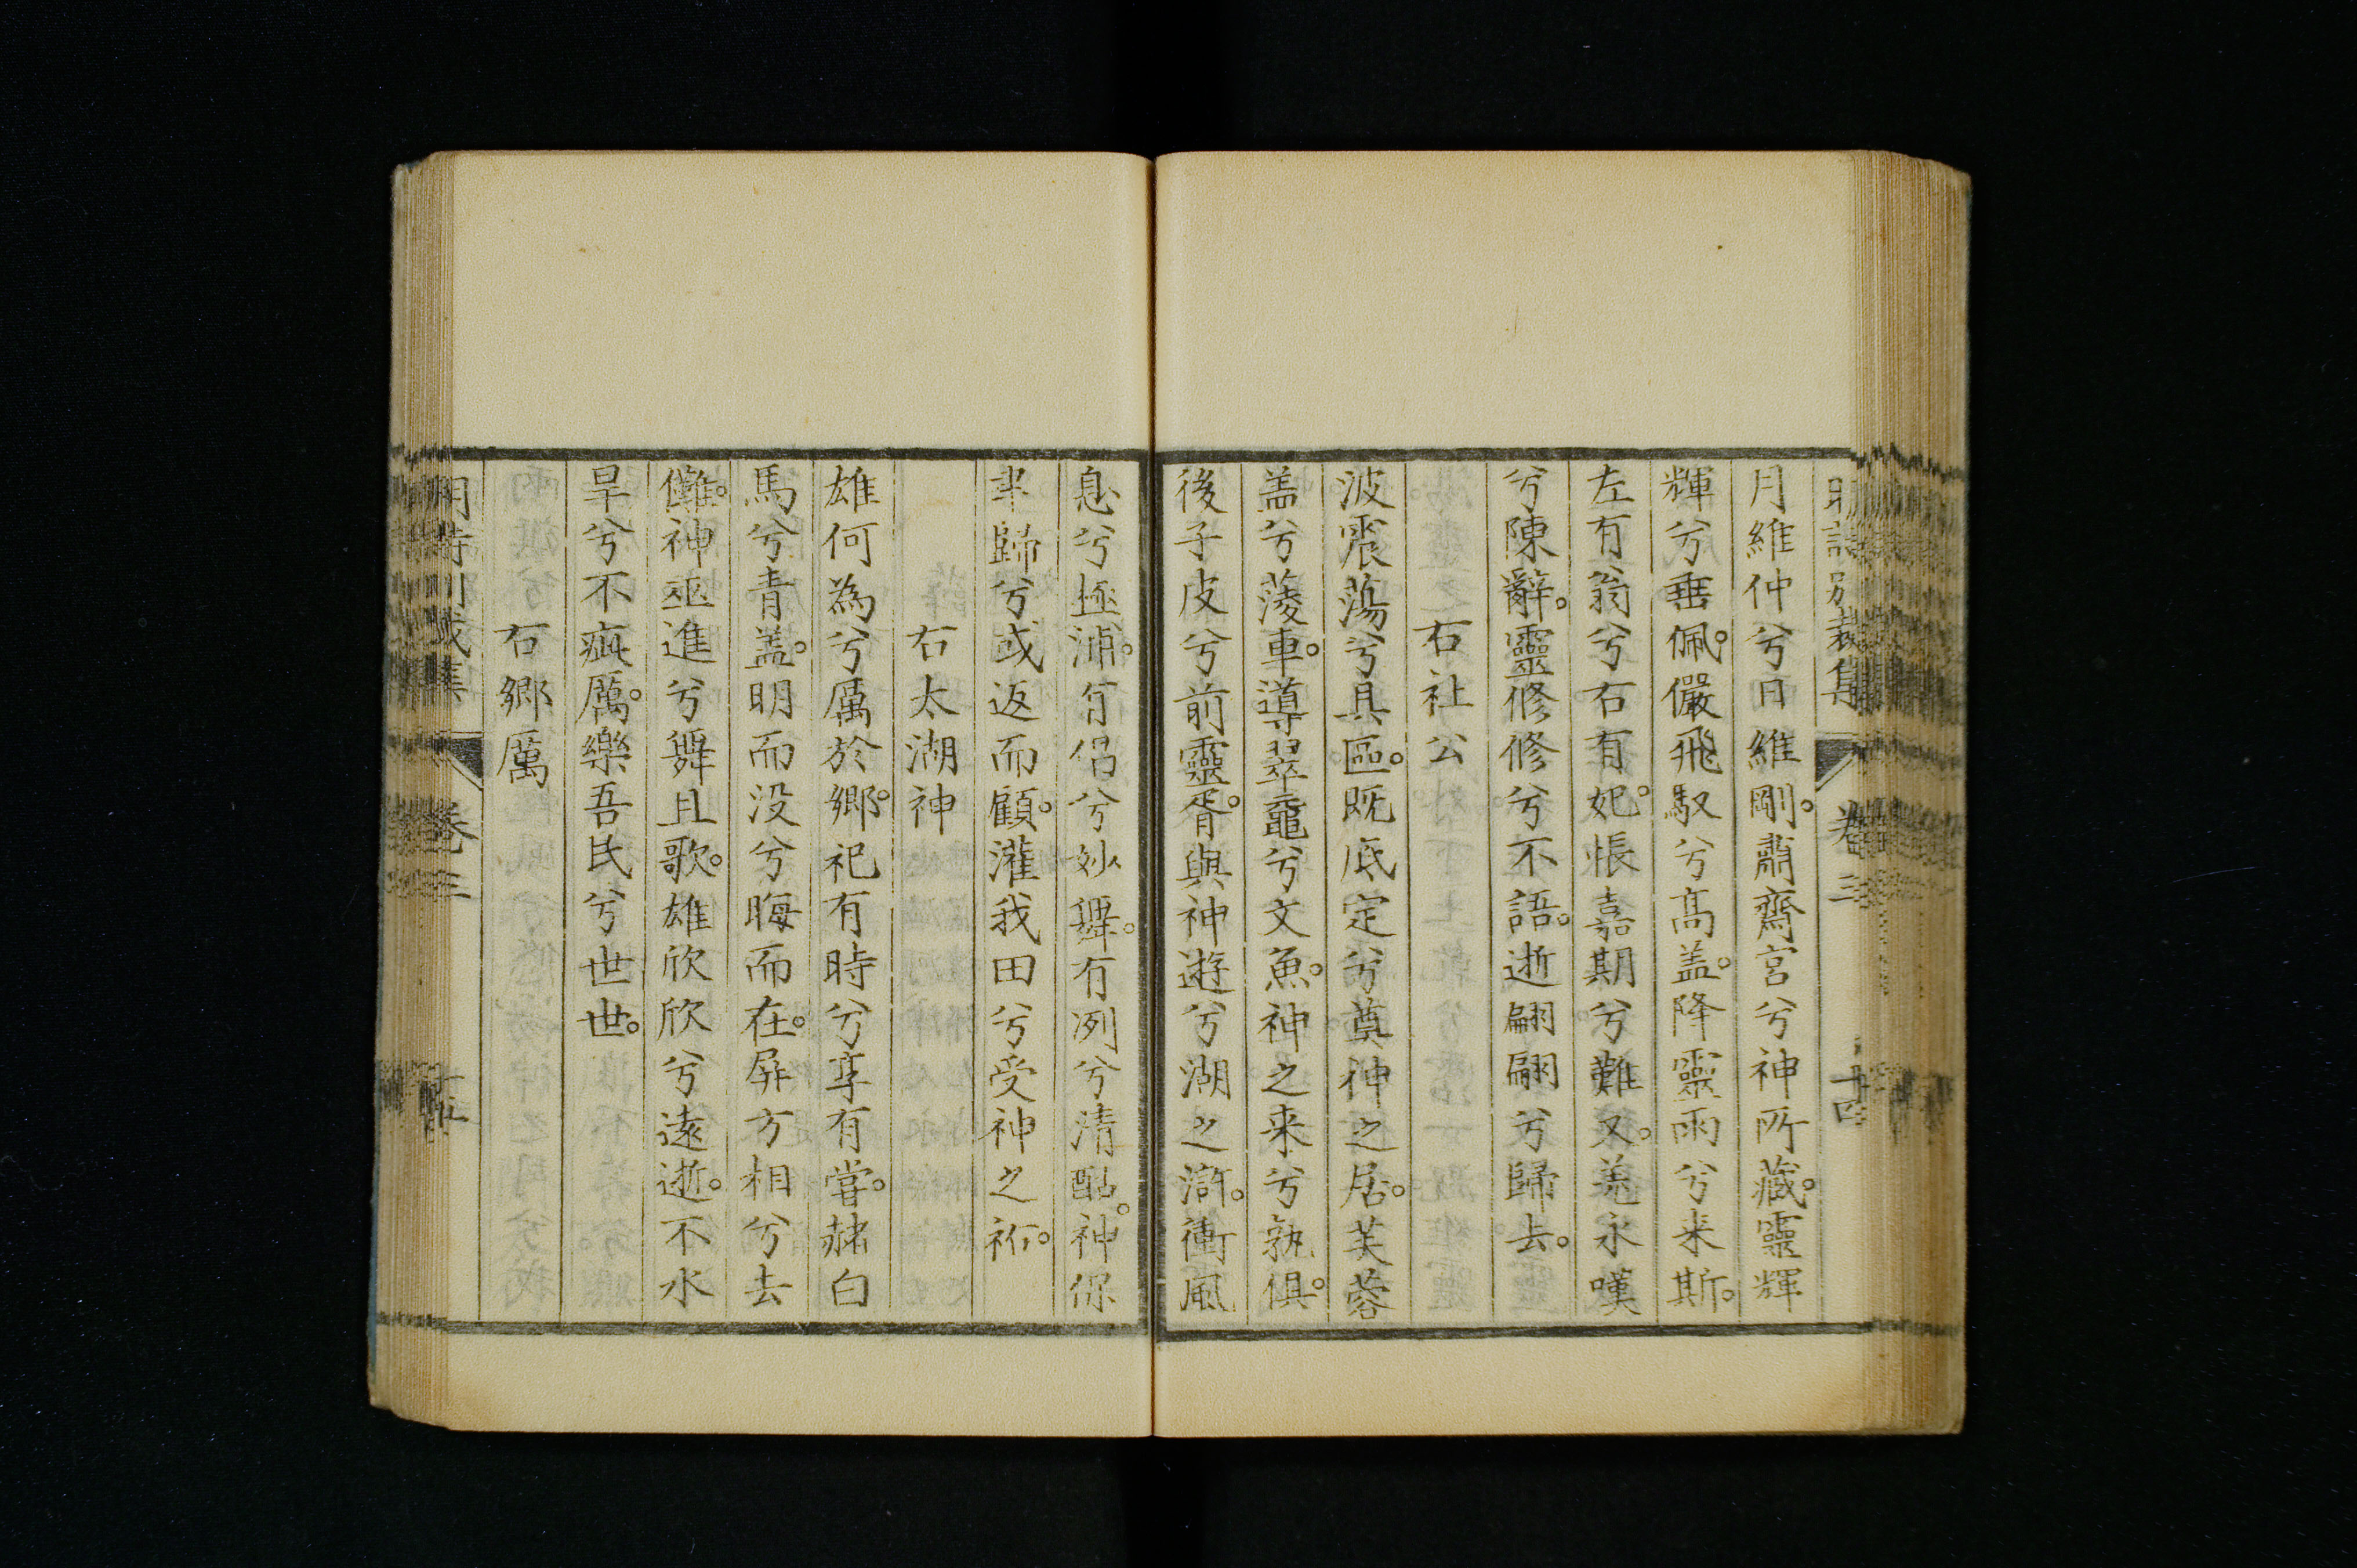 明詩別裁集 卷三 十四
月維仲兮日維剛。肅齋宮兮神所藏。靈輝
輝兮垂佩。儼飛馭兮高盖。降靈雨兮来斯。
左有翁兮右有妃。悵嘉期兮難又。羗永嘆
兮陳辭。靈修修兮不語。逝翩翩兮歸去。
右社公
波震蕩兮具區。既底定兮奠神之居。芙蓉
盖兮蔆車。導翠鼉兮文魚。神之来兮孰俱。
後子皮兮前靈胥。與神遊兮湖之滸。衝風
息兮極浦。兮侣兮妙舞。有冽兮清酤。神保
聿歸兮或返而顧。灌我田兮受神之祐。
右太湖神
雄何為兮厲於鄉。祀有時兮享有嘗。赭白
馬兮青盖。明而没兮晦而在。屏方相兮去
儺。神巫進兮舞且歌。雄欣欣兮遠逝。不水
旱兮不疵厲。樂吾民兮世世。
右鄉厲
明詩別裁集 卷三 十五